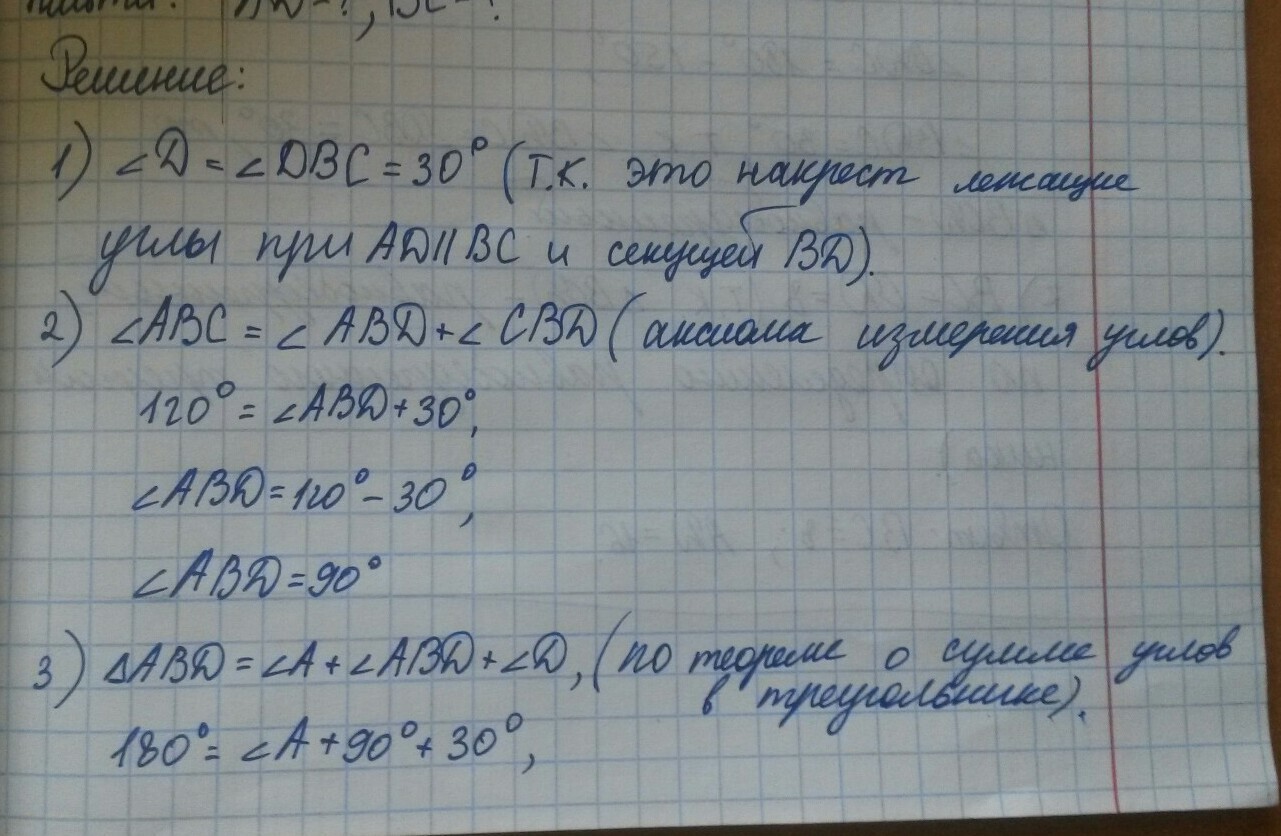 AD=?, BC=?
Решение:
1) ∠D = ∠DBC = 30° (т.к. это накрест лежащие
углы при AD∥BC и секущей BD).
2) ∠ABC = ∠ABD + ∠CBD (аксиома измерения углов).
120° = ∠ABD + 30°,
∠ABD = 120° - 30°,
∠ABD = 90°
3) ΔABD = ∠A + ∠ABD + ∠D, (по теореме о сумме углов
в треугольнике).
180° = ∠A + 90° + 30°,